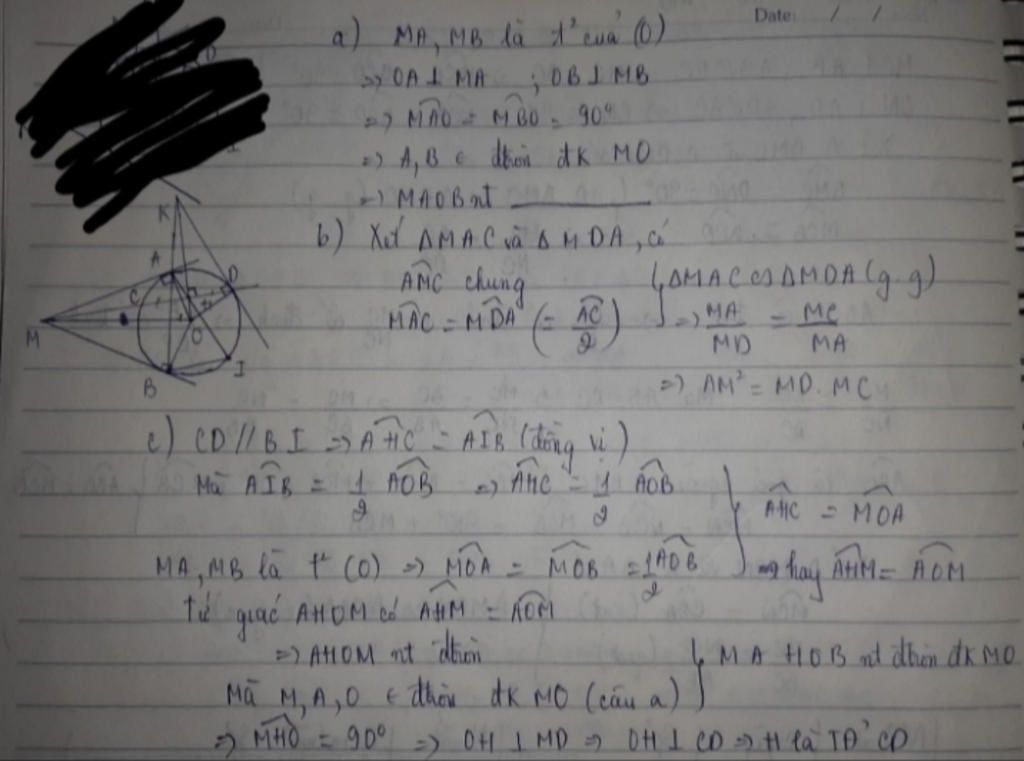 Date: / /
a) MA, MB là t² của (O)
=> OA ⊥ MA ; OB ⊥ MB
=> MAO = MBO = 90°
=> A, B ∈ đtròn đk MO
=> MAOB nt
b) Xét ΔMAC và ΔMDA, có
AMC chung
MAC = MDA (= AC/2)
ΔMAC ∽ ΔMDA (g.g)
=> MA/MD = MC/MA
=> AM² = MD. MC
K
A
D
C
M
O
B
I
c) CD // BI => AHC = AIB (đồng vị)
Mà AIB = 1/2 AOB => AHC = 1/2 AOB
AHC = MOA
MA, MB là t² (O) => MOA = MOB = 1/2 AOB => hay AHM = AOM
Tứ giác AHOM có AHM = AOM
=> AHOM nt đtròn
Mà M, A, O ∈ đtròn đk MO (câu a)
MAHOB nt đtròn đk MO
=> MHO = 90° => OH ⊥ MD => OH ⊥ CD => H là TĐ' CD